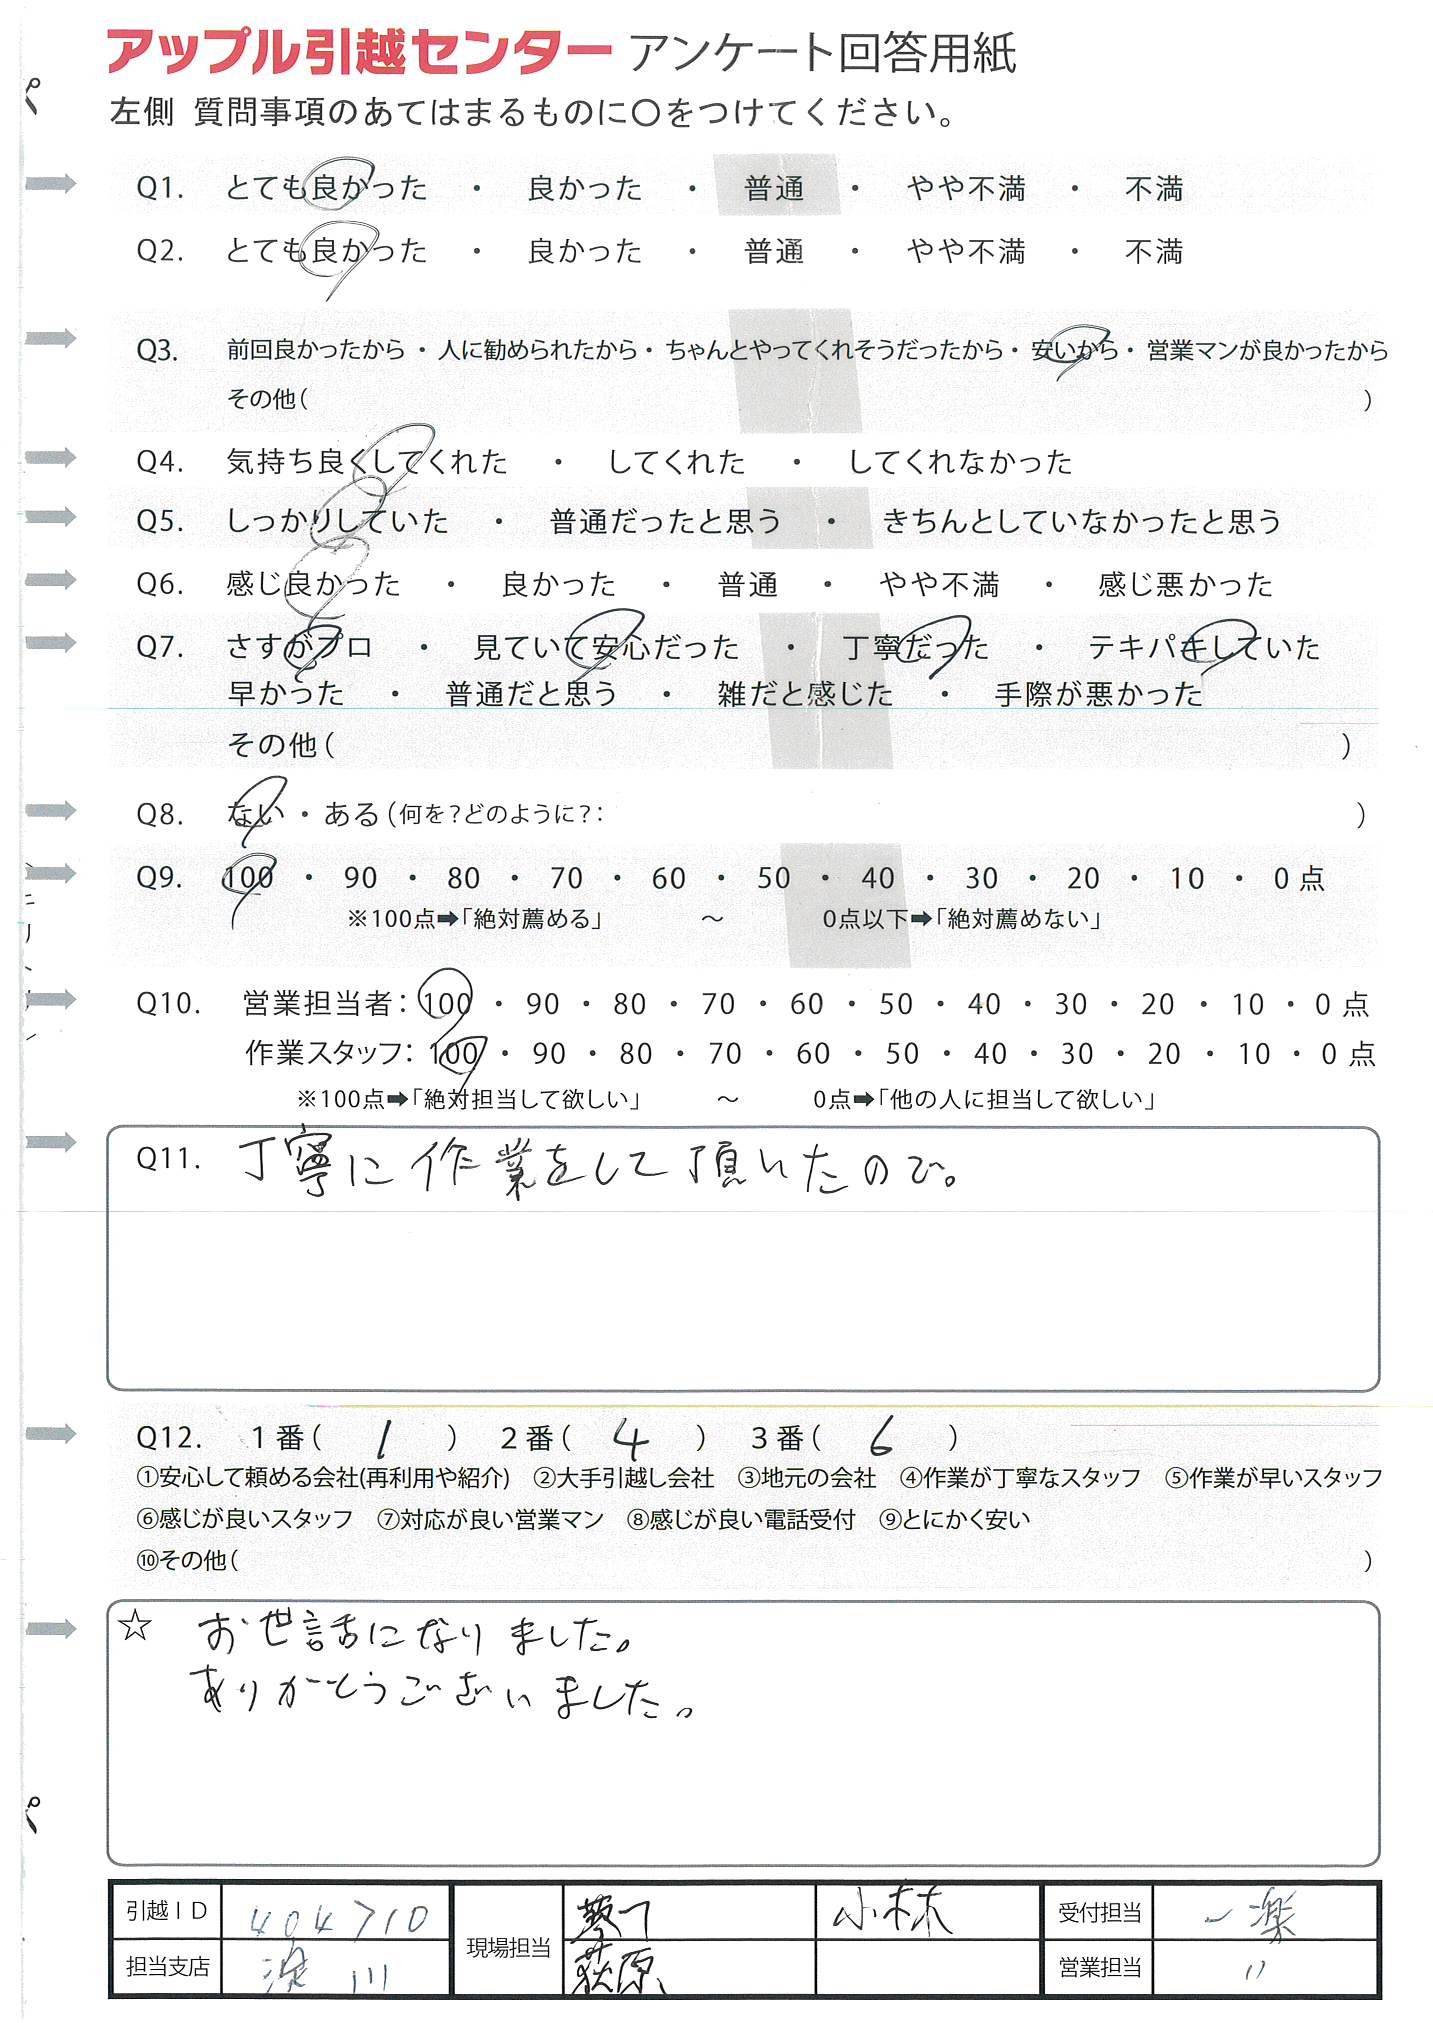 アップル引越センター アンケート回答用紙
左側 質問事項のあてはまるものに〇をつけてください。
Q1. とても良かった ・ 良かった ・ 普通 ・ やや不満 ・ 不満
Q2. とても良かった ・ 良かった ・ 普通 ・ やや不満 ・ 不満
Q3. 前回良かったから・人に勧められたから・ちゃんとやってくれそうだったから・安いから・営業マンが良かったから
その他( )
Q4. 気持ち良くしてくれた ・ してくれた ・ してくれなかった
Q5. しっかりしていた ・ 普通だったと思う ・ きちんとしていなかったと思う
Q6. 感じ良かった ・ 良かった ・ 普通 ・ やや不満 ・ 感じ悪かった
Q7. さすがプロ ・ 見ていて安心だった ・ 丁寧だった ・ テキパキしていた
早かった ・ 普通だと思う ・ 雑だと感じた ・ 手際が悪かった
その他( )
Q8. ない・ある(何を?どのように?: )
Q9. 100 ・ 90 ・ 80 ・ 70 ・ 60 ・ 50 ・ 40 ・ 30 ・ 20 ・ 10 ・ 0点
※100点➡「絶対薦める」 〜 0点以下➡「絶対薦めない」
Q10. 営業担当者: 100 ・ 90 ・ 80 ・ 70 ・ 60 ・ 50 ・ 40 ・ 30 ・ 20 ・ 10 ・ 0点
作業スタッフ: 100 ・ 90 ・ 80 ・ 70 ・ 60 ・ 50 ・ 40 ・ 30 ・ 20 ・ 10 ・ 0点
※100点➡「絶対担当して欲しい」 〜 0点➡「他の人に担当して欲しい」
Q11. 丁寧に作業をして頂いたので。
Q12. 1番( 1 ) 2番( 4 ) 3番( 6 )
①安心して頼める会社(再利用や紹介) ②大手引越し会社 ③地元の会社 ④作業が丁寧なスタッフ ⑤作業が早いスタッフ
⑥感じが良いスタッフ ⑦対応が良い営業マン ⑧感じが良い電話受付 ⑨とにかく安い
⑩その他( )
☆ お世話になりました。
ありがとうございました。
引越ID 404710 現場担当 小林 受付担当 一楽
担当支店 淀川 荻原 営業担当 〃